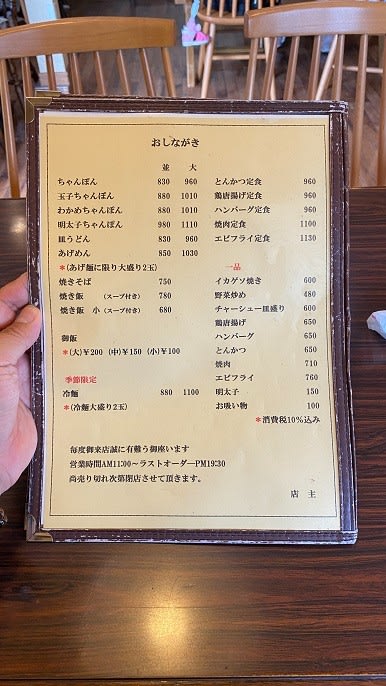 おしながき
並 大
ちゃんぽん 830 960
玉子ちゃんぽん 880 1010
わかめちゃんぽん 880 1010
明太子ちゃんぽん 980 1110
皿うどん 830 960
あげめん 850 1030
*(あげ麺に限り大盛り2玉)
焼きそば 750
焼き飯 (スープ付き) 780
焼き飯 小 (スープ付き) 680
御飯
*(大)¥200 (中)¥150 (小)¥100
季節限定
冷麺 880 1100
*(冷麺大盛り2玉)
とんかつ定食 960
鶏唐揚げ定食 960
ハンバーグ定食 960
焼肉定食 1100
エビフライ定食 1130
一品
イカゲソ焼き 600
野菜炒め 480
チャーシュー皿盛り 600
鶏唐揚げ 650
ハンバーグ 650
とんかつ 650
焼肉 710
エビフライ 760
明太子 150
お吸い物 100
*消費税10%込み
毎度御来店誠に有難う御座います
営業時間AM11:00~ラストオーダ―PM19:30
尚売り切れ次第閉店させて頂きます。
店 主